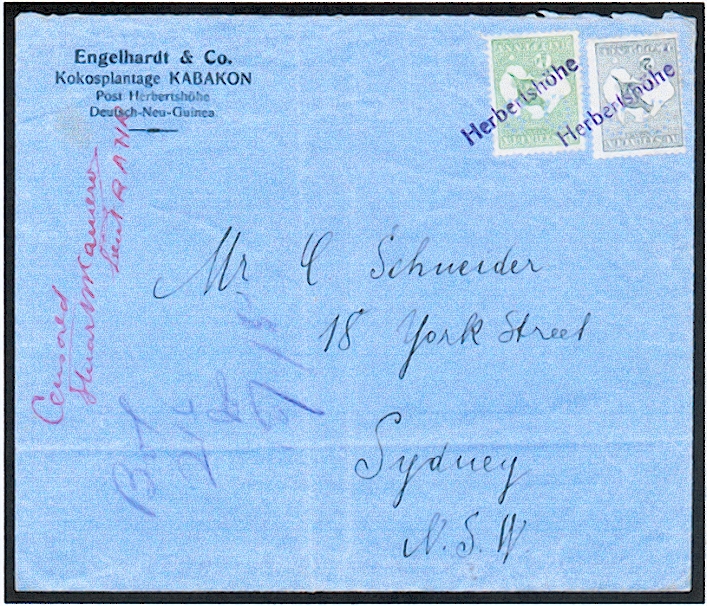 Engelhardt & Co.
Kokosplantage KABAKON
Post Herbertshöhe
Deutsch-Neu-Guinea
Herbertshöhe
Herbertshöhe
Censored
Lieut RANR
Mr C Schneider
18 York Street
Sydney
N. S. W.